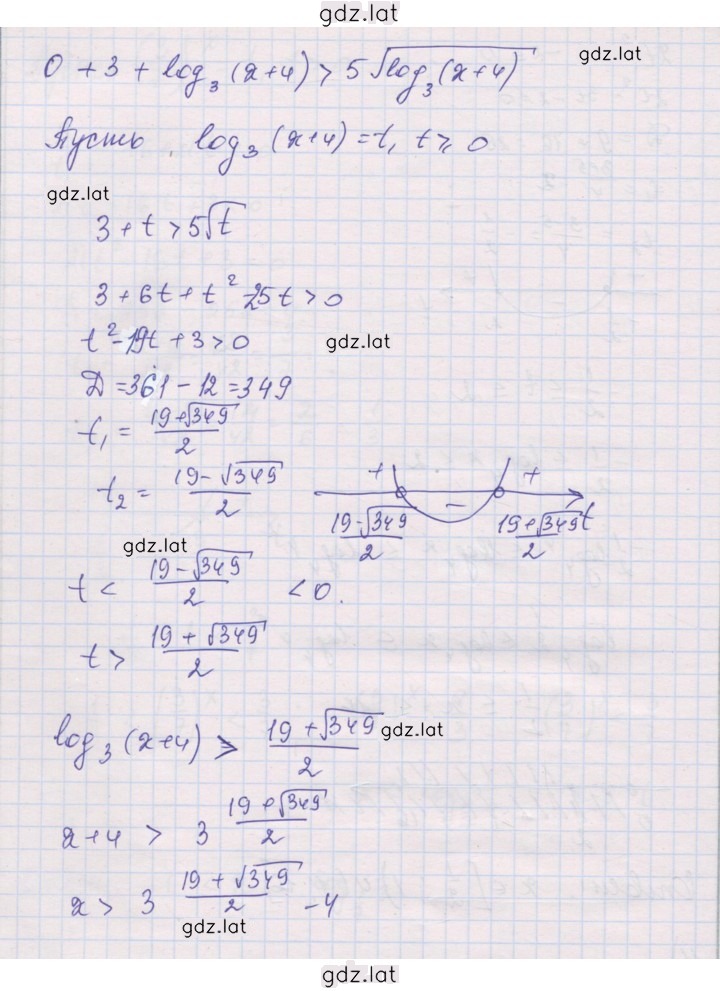 gdz.lat
gdz.lat
0 + 3 + log₃(x+4) > 5√log₃(x+4)
Пусть log₃(x+4) = t, t ≥ 0
gdz.lat
3 + t > 5√t
3 + 6t + t² - 25t > 0
t² - 19t + 3 > 0 gdz.lat
D = 361 - 12 = 349
t₁ = (19+√349)/2
t₂ = (19-√349)/2
+ - +
(19-√349)/2 (19+√349)/2 t
gdz.lat
t < (19-√349)/2 < 0.
t > (19+√349)/2
log₃(x+4) > (19+√349)/2 gdz.lat
x+4 > 3^((19+√349)/2)
x > 3^((19+√349)/2) - 4
gdz.lat
gdz.lat